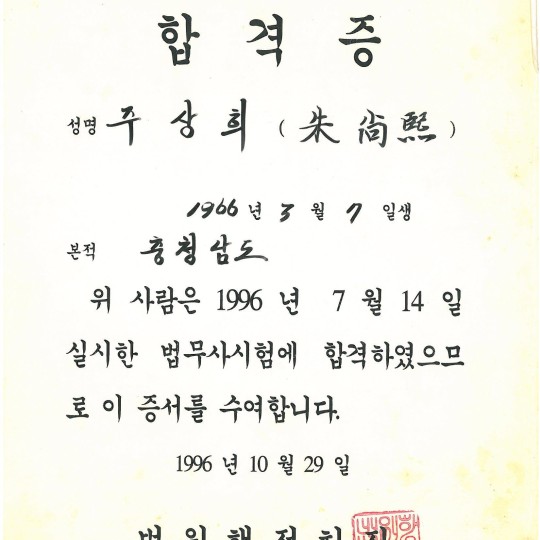 합격증
성명 주상희 (朱尙熙)
1966년 3월 7일생
본적 충청남도
위 사람은 1996년 7월 14일
실시한 법무사시험에 합격하였으므
로 이 증서를 수여합니다.
1996년 10월 29일
법원행정처장